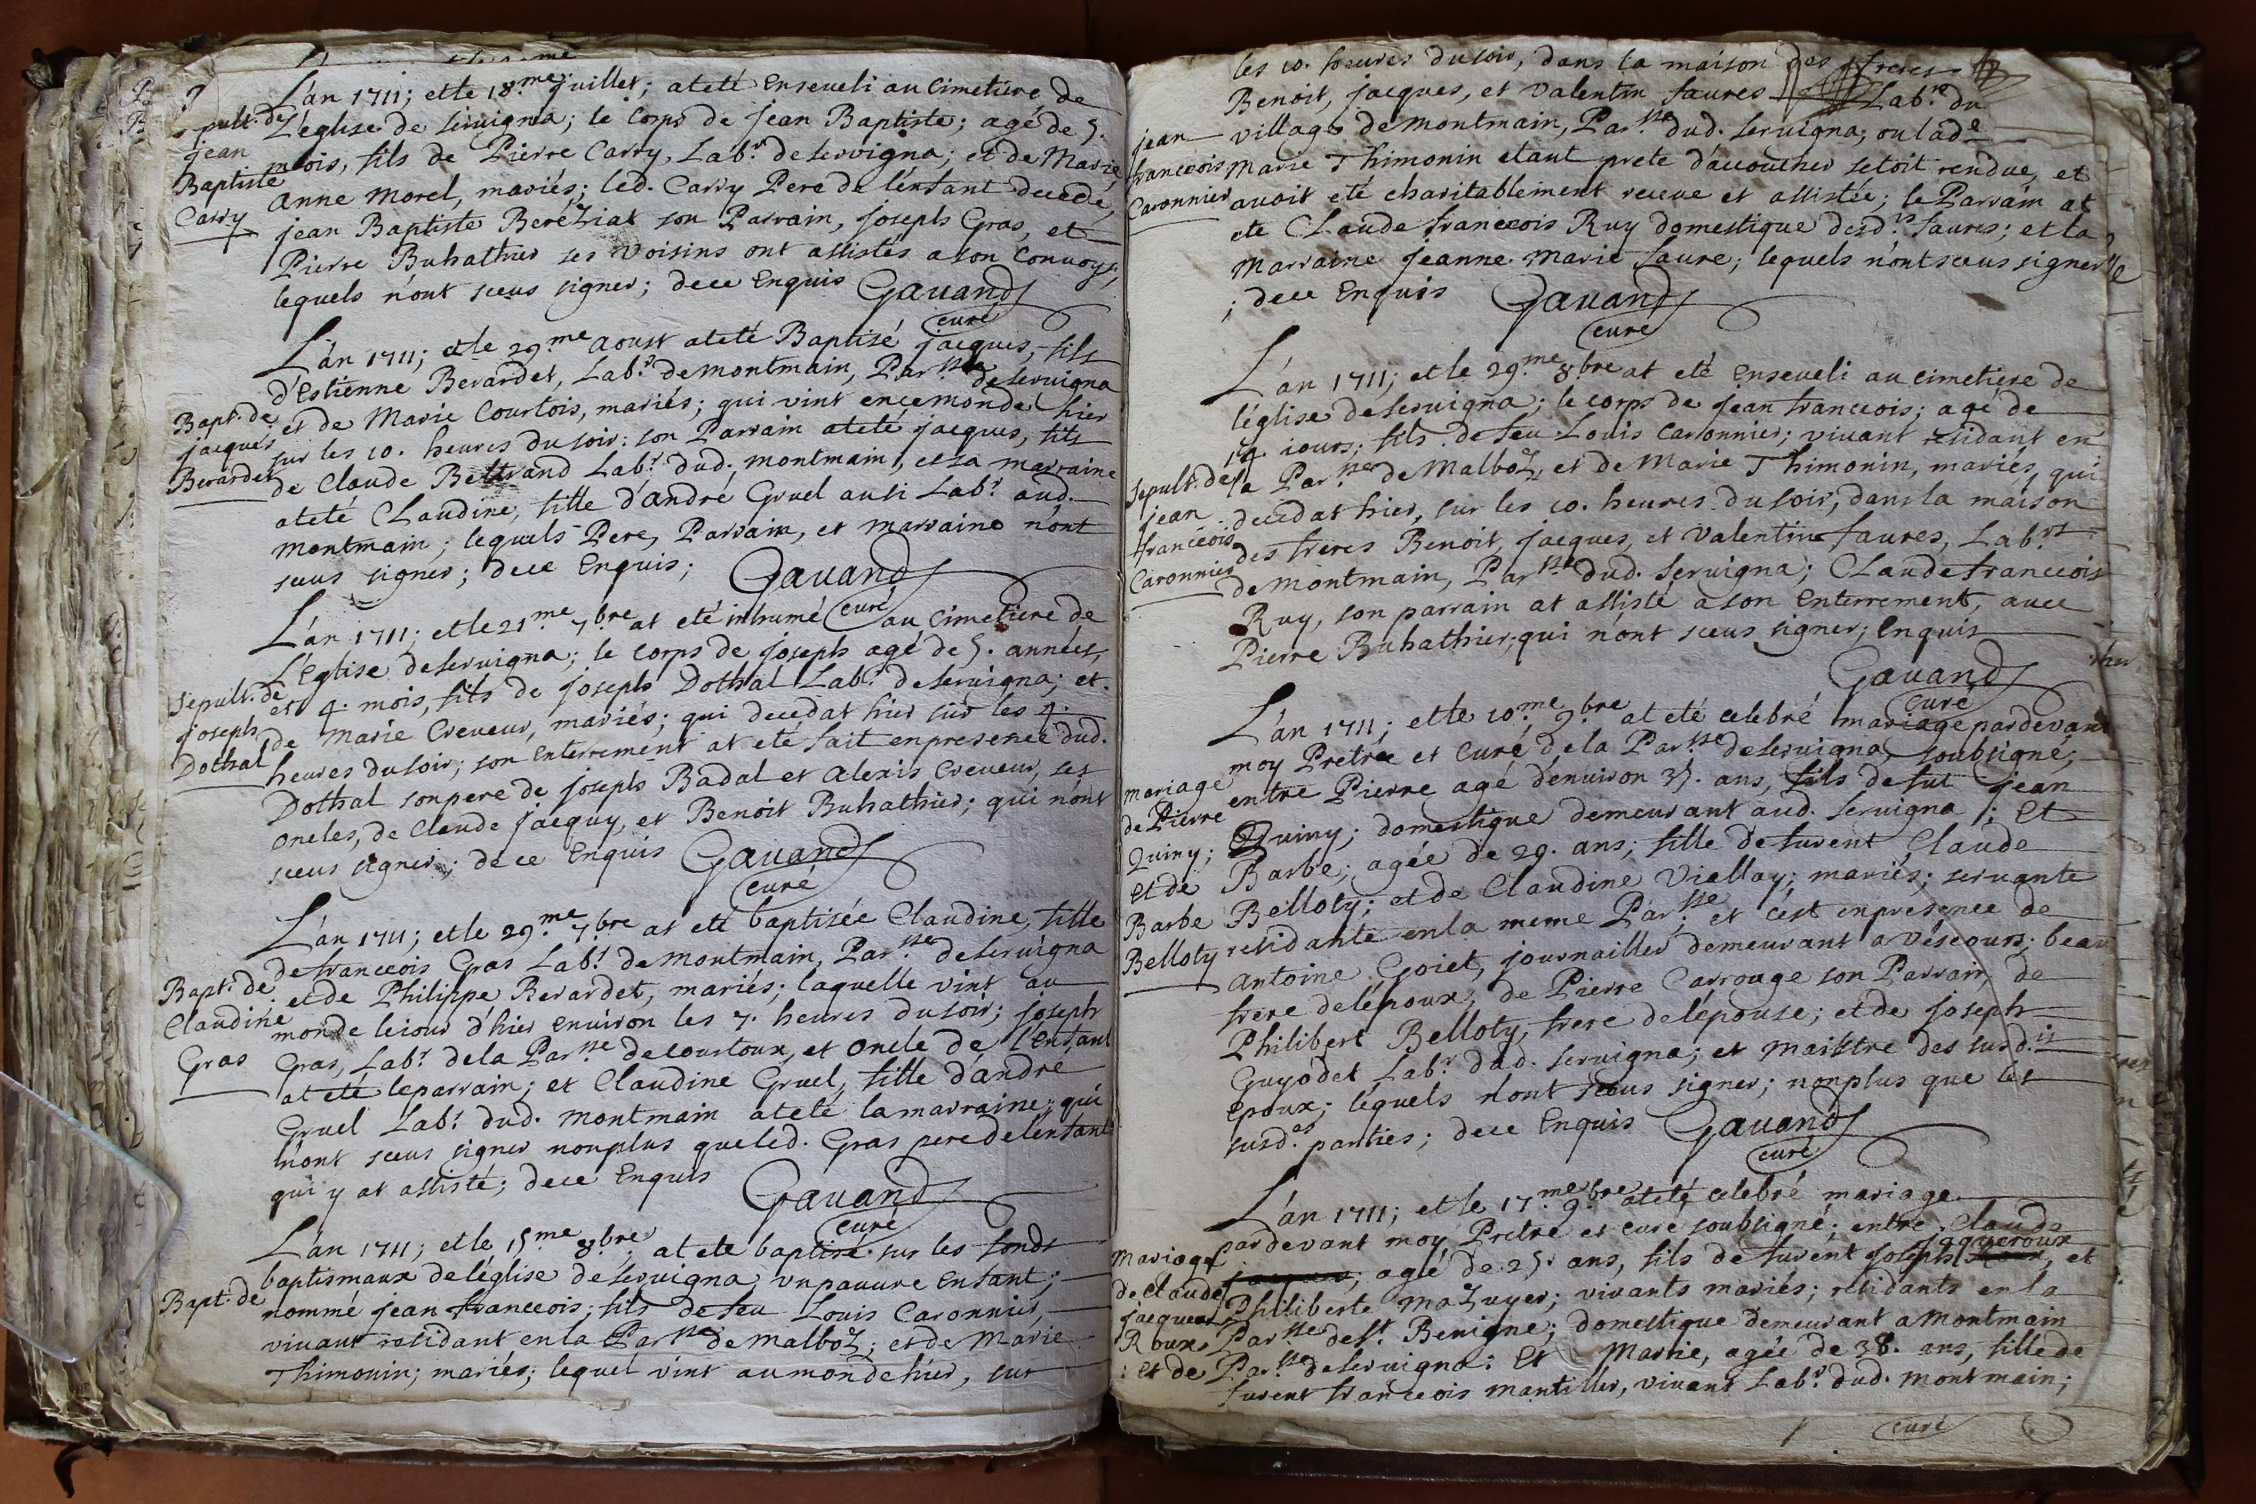 L'an 1711; et le 18.me juillet; at eté Enseveli au Cimetiere de
Sepult. de L'eglise de servigna; le Corps de jean Baptiste; agé de 5.
jean mois, fils de Pierre Carry, Lab.r de servigna; et de Marie
Baptiste Anne Morel, mariés; led. Carry Pere de l'enfant decedé,
Carry jean Baptiste Beréziat son Parrain, joseph Gras, et
Pierre Buhathier ses Voisins ont assistés a son Convoys,
lequels n'ont sceus signer; de ce Enquis Gavand
curé
L'an 1711; et le 29.me Aoust at eté Baptisé jacques, fils
d'Estienne Berardet, Lab.r de montmain, Par.sse de servigna
Bapt. de et de Marie Courtois, mariés; qui vint en ce monde hier
jacques sur les 10. heures du soir: son Parrain at eté jacques, fils
Berardet de Claude Beltrand Lab.r dud. montmain, et sa marraine
at eté Claudine, fille d'andré Gruel ausi Lab.r aud.
montmain; lequels Pere, Parrain, et marraine n'ont
sceus signer; de ce Enquis; Gavand
curé
L'an 1711; et le 21.me 7.bre at eté inhumé au Cimetiere de
L'Eglise de servigna; le Corps de joseph agé de 5. années,
Sepult. de et 4. mois, fils de joseph Dothal Lab.r de servigna; et
joseph de Marie Creveur, mariés; qui decedat hier sur les 4.
Dothal heures du soir; son Enterrement at eté fait en presence dud.
Dothal son pere de joseph Badal et Alexis Creveur, ses
oncles, de Claude jacquy, et Benoit Buhathier; qui n'ont
sceus signer; de ce Enquis Gavand
curé
L'an 1711; et le 29.me 7.bre at eté baptisée Claudine, fille
de francois Gras Lab.r de montmain, Par.sse de servigna
Bapt. de et de Philippe Berardet, mariés; laquelle vint au
Claudine monde le iour d'hier environ les 7. heures du soir; joseph
Gras Gras, Lab.r de la Par.sse de courtoux, et oncle de l'Enfant
at eté le parrain; et Claudine Gruel, fille d'andré
Gruel Lab.r dud. montmain at eté la marraine; qui
n'ont sceus signer nonplus que led. Gras pere de l'enfant
qui y at assisté; de ce Enquis Gavand
curé
L'an 1711; et le 15.me 8.bre; at eté baptisé sur les fonds
baptismaux de l'église de servigna, un pauvre Enfant;
Bapt. de nommé jean francois; fils de feu Louis Caronnier,
vivant residant en la Par.sse de malboz; et de Marie
Thimonin; mariés; lequel vint au monde hier, sur
les 10. heures du soir, dans la maison des freres
Benoit, jacques, et Valentin faures Lab.rs du
jean village de montmain, Par.sse dud. servigna; ou lad.e
francois Marie Thimonin etant prete d'acoucher setoit rendue, et
Caronnier avoit eté charitablement receue et assistée; le Parrain at
ete Claude francois Ruy domestique desd.ts faures; et la
marraine jeanne Marie faure; lequels n'ont sceus signer
; de ce Enquis Gavand
curé
L'an 1711; et le 29.me 8.bre at eté Enseveli au cimetiere de
l'église de servigna; le corps de jean francois; agé de
14. iours; fils de feu Louis Caronnier; vivant residant en
Sepult. de la Par.sse de Malboz, et de Marie Thimonin, mariés, qui
jean decedat hier, sur les 10. heures du soir, dans la maison
francois des freres Benoit, jacques, et Valentin faures, Lab.rs
Caronnier de montmain, Par.sse dud. servigna; Claude francois
Ruy, son parrain at assisté a son Enterrement, avec
Pierre Buhathier; qui n'ont sceus signer; Enquis
Gavand
curé
L'an 1711; et le 10.me 9.bre at eté celebré mariage pardevant
moy Pretre et Curé de la Par.sse de servigna, soubsigné;
mariage entre Pierre agé d'environ 35. ans, fils de fut jean
de Pierre Quiny; domestique demeurant aud. servigna; Et
Quiny; Barbe; agée de 29. ans; fille de furent Claude
et de Belloty; et de Claudine Viallay; mariés; servante
Barbe residante en la meme Par.sse et c'est en presence de
Belloty antoine Goiet, journaillier demeurant a vescours; beau
frere de l'époux; de Pierre Carrouge son Parrain; de
Philibert Belloty, frere de l'épouse; et de joseph
Guyodet Lab.r dud. servigna; et maistre des susd.its
epoux; lequels n'ont sceus signer; nonplus que les
susd.es parties; de ce Enquis Gavand
curé
L'an 1711; et le 17.me 9.bre at eté celebré mariage
pardevant moy Pretre et curé soubsigné; entre Claude
jaqueroux
Mariage agé de 25. ans, fils de furent joseph, et
de Claude Philiberte mazuyer; vivants mariés; residants en la
jacques Roux Par.sse de s.t Benigne; domestique demeurant a Montmain
: et de Par.sse de servigna: Et Marie, agée de 38. ans, fille de
furent francois mantillier, vivant Lab.r dud. montmain;
curé